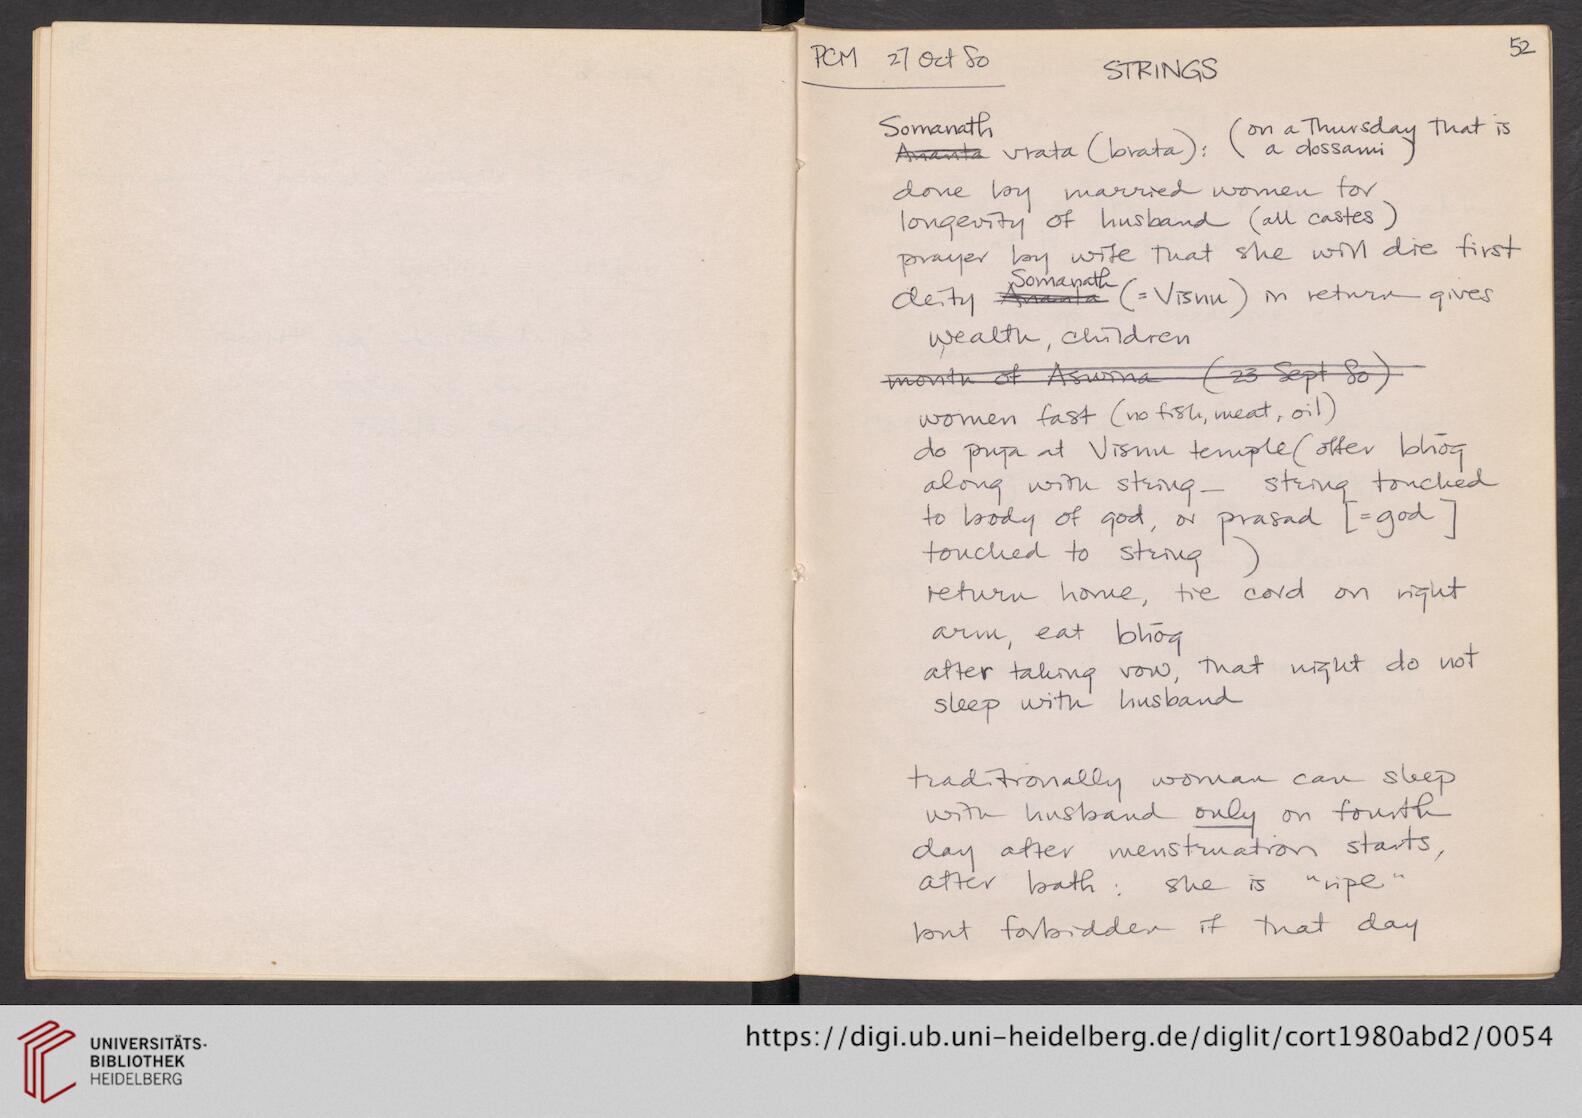 PCM 27 Oct 80
STRINGS
52
Somanath
Ananta vrata (brata): (on a Thursday that is
a dossami)
done by married women for
longevity of husband (all castes)
prayer by wife that she will die first
Somanath
deity Ananta (=Visnu) in return gives
wealth, children
month of Aswina (23 Sept 80)
women fast (no fish, meat, oil)
do puja at Visnu temple (offer bhōg
along with string – string touched
to body of god, or prasad [=god]
touched to string)
return home, tie cord on right
arm, eat bhōg
after taking vow, that night do not
sleep with husband
traditionally woman can sleep
with husband only on fourth
day after menstruation starts,
after bath: she is "ripe"
but forbidden if that day
UNIVERSITÄTS-
BIBLIOTHEK
HEIDELBERG
https://digi.ub.uni-heidelberg.de/diglit/cort1980abd2/0054